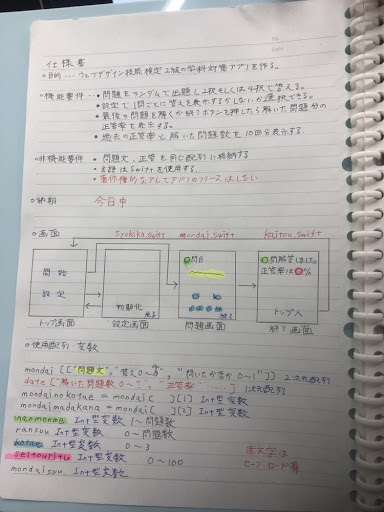 仕様書
○目的…ウェブデザイン技能検定2級の学科対策アプリを作る。
○機能要件…・問題をランダムで出題し2択もしくは4択で答える。
・設定で1問ごとに答えを表示するかしないか選択できる。
・最後の問題を解くか終了ボタンを押したら解いた問題分の
正答率を表示する。
・過去の正答率と解いた問題数を10回分表示する。
○非機能要件・問題文、正答を同じ配列に格納する
・言語はSwiftを使用する。
・著作権的なアレでアプリのリリースはしない
○納期 今日中
○画面 syokika.swift mondai.swift kaitou.swift
開始
設定
トップ画面
初期化
設定画面
問目
終了
問題画面
問解答しました。
正答率は %
トップへ
終了画面
○使用配列・変数
mondai [["問題文","答え0〜","開いたか否か0〜1"]] 2次元配列
date ["解いた問題数0〜?","正答率" ...] 1次元配列
mondainokotae = mondai [ ][1] Int型変数
mondaimadakana = mondai [ ][2] Int型変数
nanmonme Int型変数 1〜問題数
ransuu Int型変数 0〜問題数
kotae Int型変数 0〜3
seitouritu Int型変数 0〜100
mondaisuu Int型変数
赤文字は
セーブ ロード有